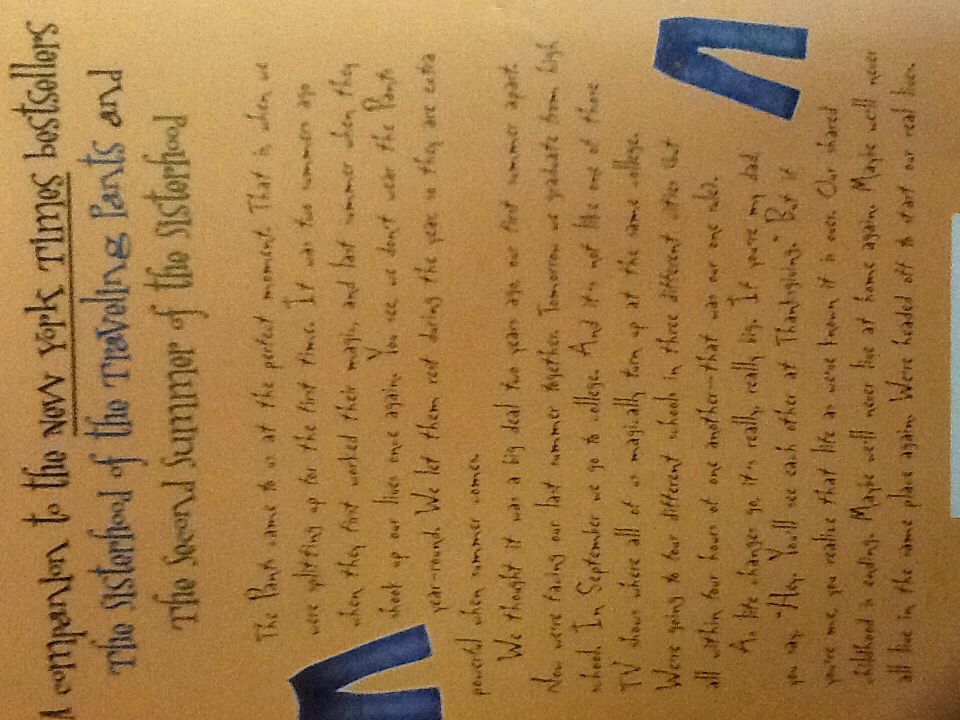 A companion to the New York Times bestsellers
The Sisterhood of the Traveling Pants and
The Second Summer of the Sisterhood
The Pants came to us at the perfect moment. That is, when we
were splitting up for the first time. It was two summers ago
when they first worked their magic, and last summer when they
shook up our lives once again. You see, we don't wear the Pants
year-round. We let them rest during the year, so they are extra
powerful when summer comes.
We thought it was a big deal two years ago, our first summer apart.
Now we're facing our last summer together. Tomorrow we graduate from high
school. In September we go to college. And it's not like one of those
TV shows where all of us magically turn up at the same college.
We're going to four different schools in three different cities (but
all within four hours of one another—that was our one rule).
As life changes go, it's really, really big. If you're my dad,
you say, "Hey. You'll see each other at Thanksgiving." But if
you're me, you realize that life as we've known it is over. Our shared
childhood is ending. Maybe we'll never live at home again. Maybe we'll never
all live in the same place again. We're headed off to start our real lives.